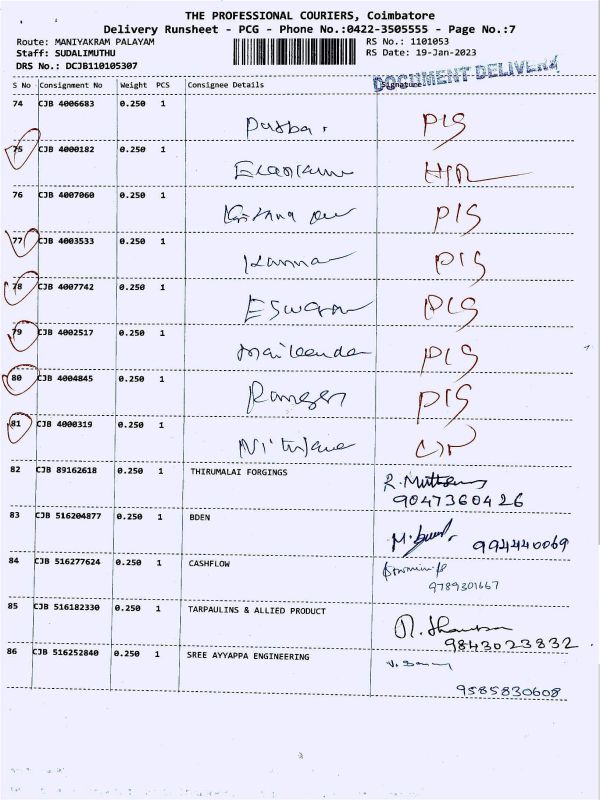 THE PROFESSIONAL COURIERS, Coimbatore
Delivery Runsheet - PCG - Phone No.:0422-3505555 - Page No.:7
Route: MANIYAKRAM PALAYAM RS No.: 1101053
Staff: SUDALIMUTHU RS Date: 19-Jan-2023
DRS No.: DCJB110105307
DOCUMENT DELIVERY
S No Consignment No Weight PCS Consignee Details Signature
74 CJB 4006683 0.250 1
PIS
75 CJB 4000182 0.250 1
76 CJB 4007060 0.250 1
PIS
77 CJB 4003533 0.250 1
Kanna PIS
78 CJB 4007742 0.250 1
Eswaran PIS
79 CJB 4002517 0.250 1
PIS
80 CJB 4004845 0.250 1
PIS
81 CJB 4000319 0.250 1
82 CJB 89162618 0.250 1 THIRUMALAI FORGINGS
9047360426
83 CJB 516204877 0.250 1 BDEN
994440069
84 CJB 516277624 0.250 1 CASHFLOW
9789301667
85 CJB 516182330 0.250 1 TARPAULINS & ALLIED PRODUCT
9843023832
86 CJB 516252840 0.250 1 SREE AYYAPPA ENGINEERING
9585830608